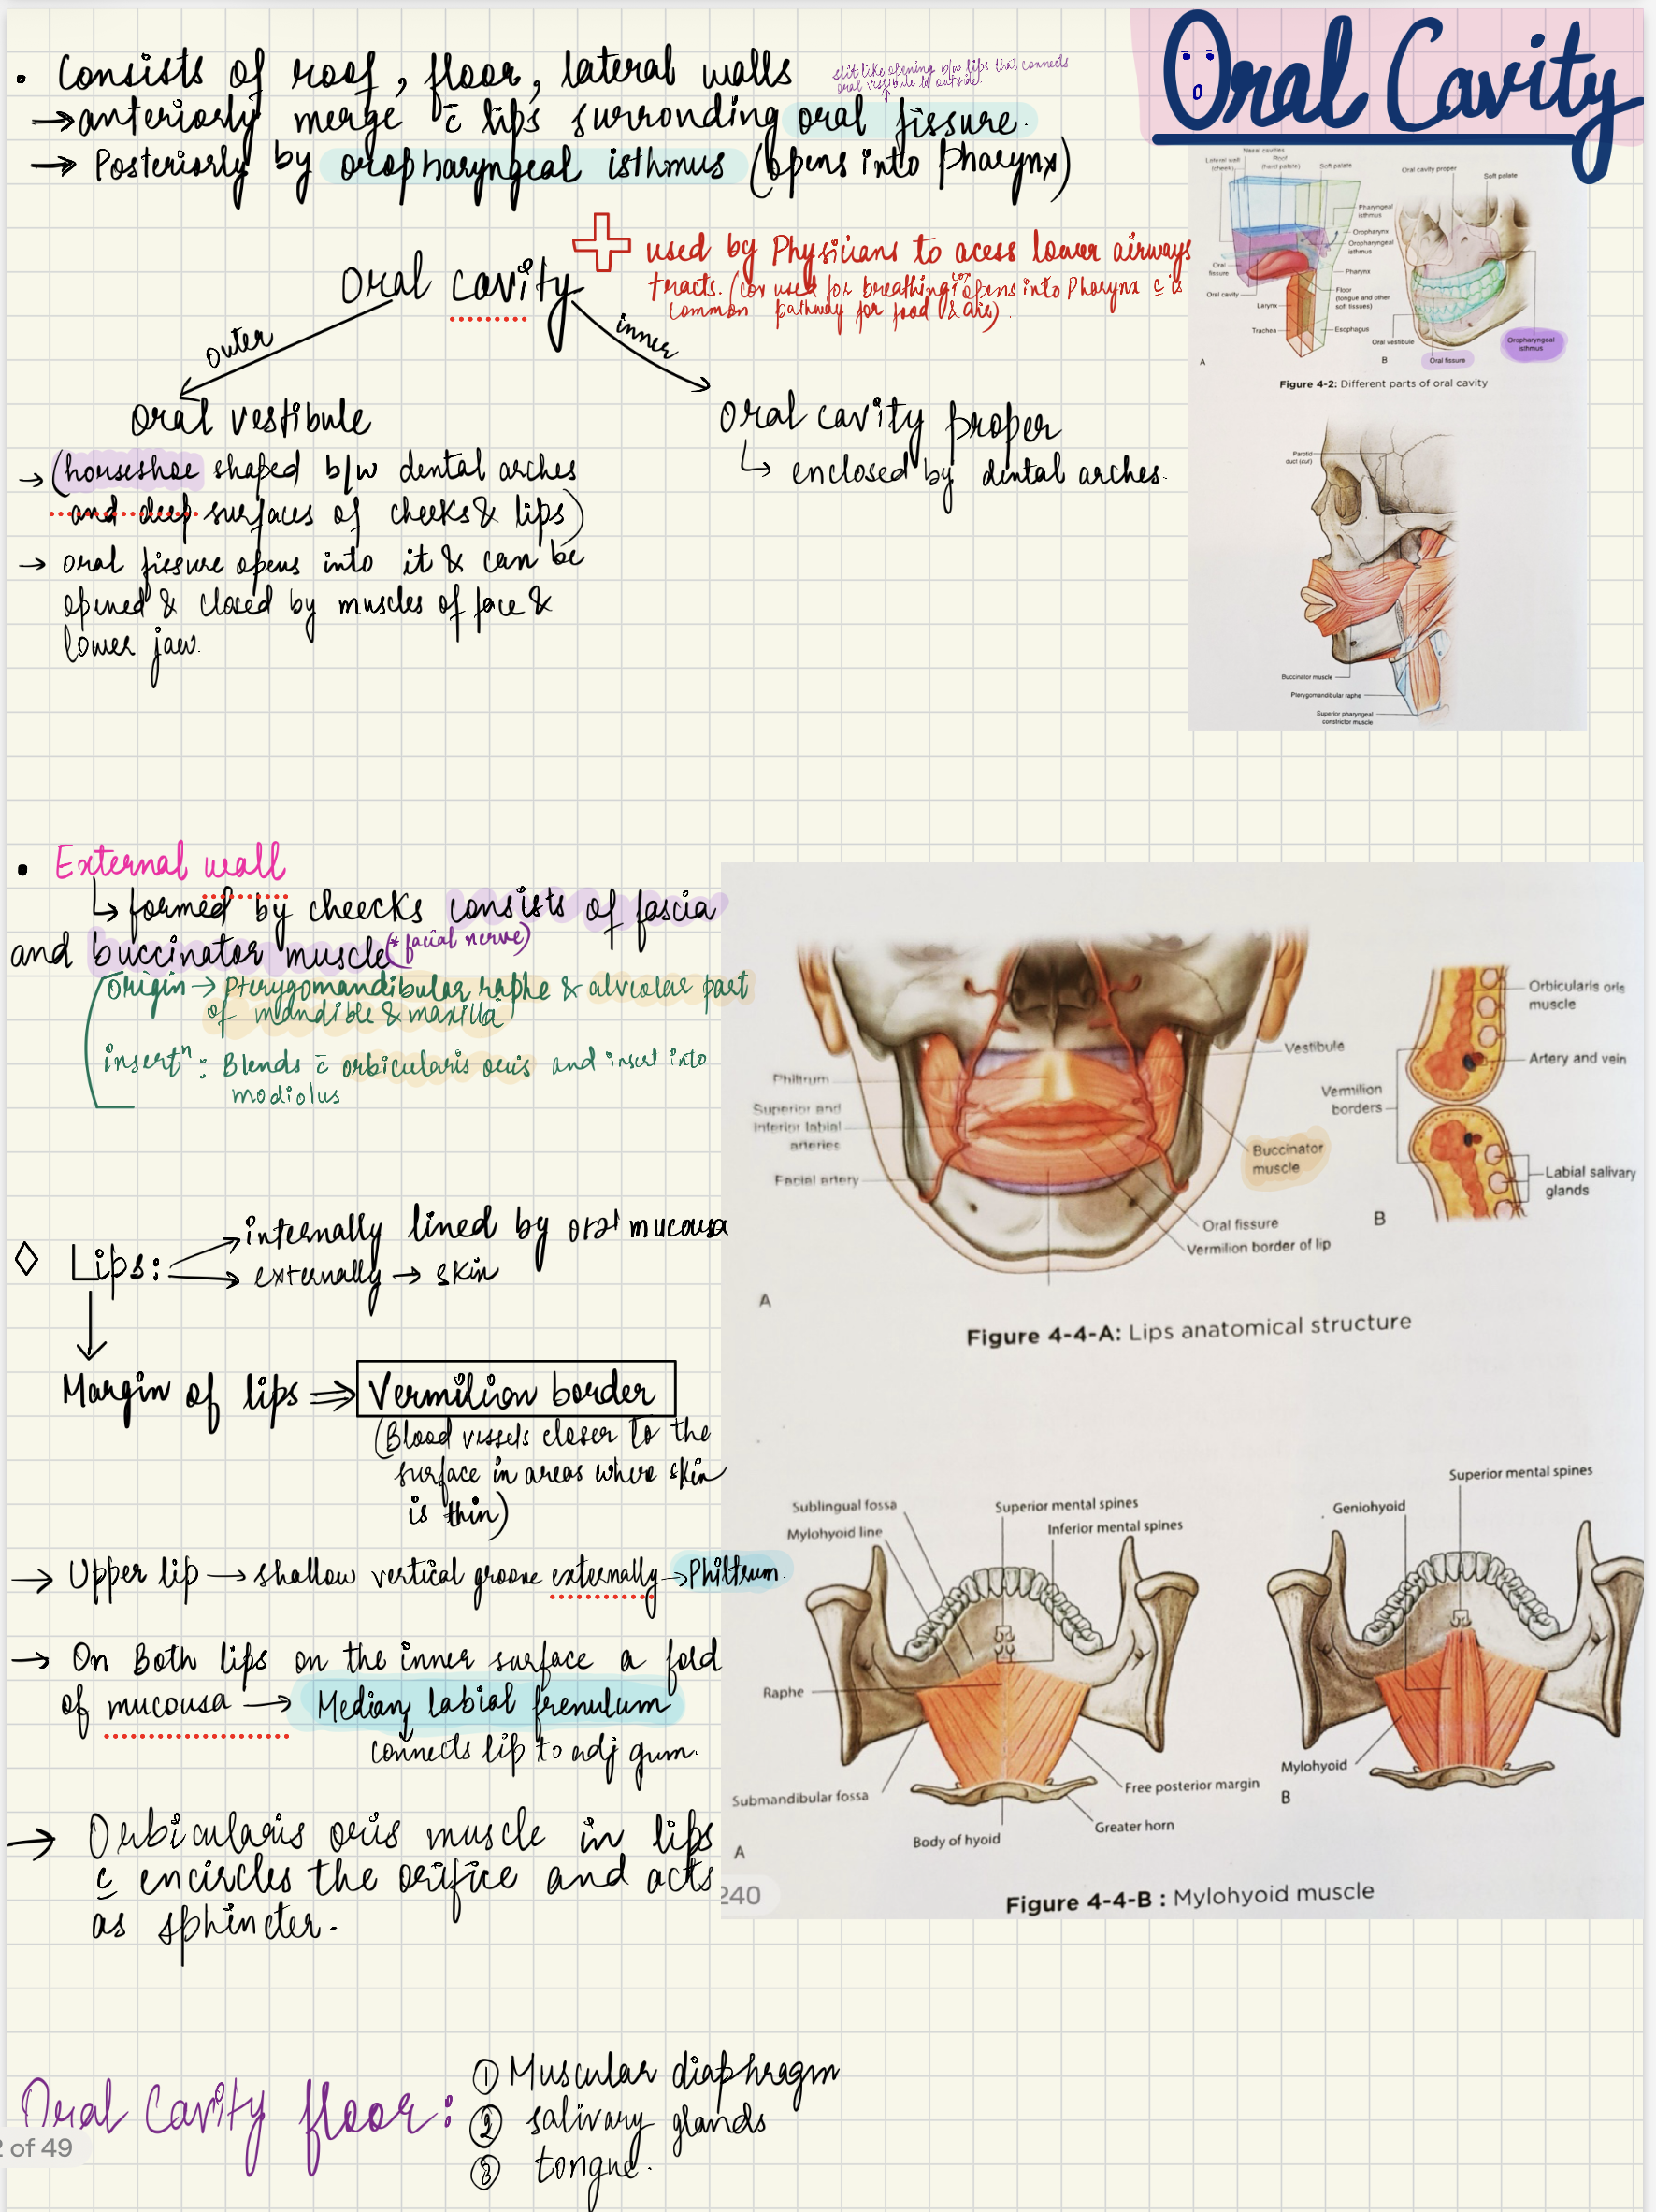 Oral Cavity
• Consists of roof, floor, lateral walls
slit like opening b/w lips that connects
oral vestibule to outside.
→ anteriorly merge c̄ lips surronding oral fissure.
→ Posteriorly by oropharyngeal isthmus (opens into Pharynx)
Oral cavity
used by Physicians to acess lower airways
tracts. (cor used for breathing coz opens into Pharynx c̲ is
common pathway for food & air).
outer
inner
Oral vestibule
→ (horseshoe shaped b/w dental arches
and deep surfaces of cheeks & lips)
→ oral fissure opens into it & can be
opened & closed by muscles of face &
lower jaw.
Oral cavity proper
↳ enclosed by dental arches.
Nasal cavities
Lateral wall
(cheek)
Roof
(hard palate)
Soft palate
Pharyngeal
isthmus
Oropharynx
Oropharyngeal
isthmus
Oral
fissure
Pharynx
Oral cavity
Floor
(tongue and other
soft tissues)
Larynx
Trachea
Esophagus
A
Oral cavity proper
Soft palate
Oral vestibule
Oral fissure
Oropharyngeal
isthmus
B
Figure 4-2: Different parts of oral cavity
Parotid
duct (cut)
Buccinator muscle
Pterygomandibular raphe
Superior pharyngeal
constrictor muscle
• External wall
↳ formed by cheecks consists of fascia
and buccinator muscle (* facial nerve)
origin → Pterygomandibular raphe & alveolar part
of mandible & maxilla
insertⁿ : Blends c̄ orbicularis oris and insert into
modiolus
◊ Lips: → internally lined by oral mucousa
→ externally → skin
Margin of lips ⇒ Vermilion border
(Blood vessels closer to the
surface in areas where skin
is thin)
→ Upper lip → shallow vertical groove externally → Philtrum.
→ On Both lips on the inner surface a fold
of mucousa → Median labial frenulum
connects lip to adj gum.
→ Orbicularis oris muscle in lips
c̲ encircles the orifice and acts
as sphincter.
Philtrum
Superior and
inferior labial
arteries
Facial artery
Vestibule
Buccinator
muscle
Oral fissure
Vermilion border of lip
A
Orbicularis oris
muscle
Artery and vein
Vermilion
borders
Labial salivary
glands
B
Figure 4-4-A: Lips anatomical structure
Sublingual fossa
Mylohyoid line
Superior mental spines
Inferior mental spines
Raphe
Submandibular fossa
Body of hyoid
Free posterior margin
Greater horn
A
Superior mental spines
Geniohyoid
Mylohyoid
B
240
Figure 4-4-B : Mylohyoid muscle
Oral Cavity floor:
① Muscular diaphragm
② salivary glands
③ tongue.
2 of 49